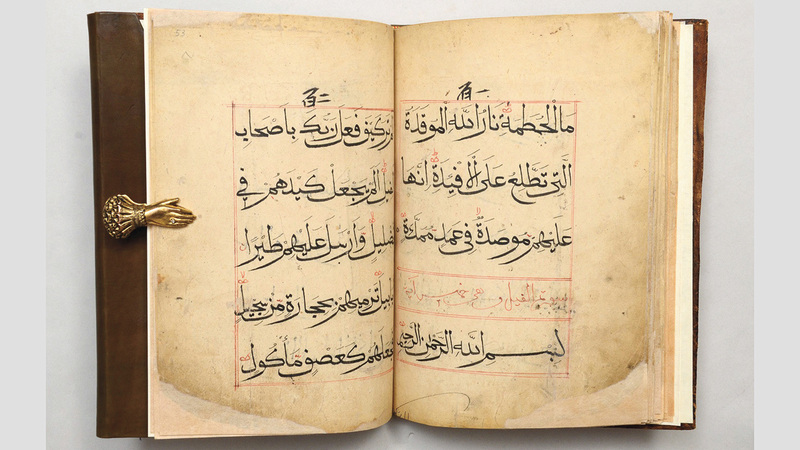 مَا الْحُطَمَةُ نَارُ اللَّهِ الْمُوقَدَةُ
الَّتِي تَطَّلِعُ عَلَى الْأَفْيِدَةِ إِنَّهَا
عَلَيْهِمْ مُوصَدَةٌ فِي عَمَدٍ مُمَدَّدَةٍ
سورة الفيل و هي خمس
بِسْمِ اللَّهِ الرَّحْمَٰنِ الرَّحِيمِ
53
تَرَ كَيْفَ فَعَلَ رَبُّكَ بِأَصْحَابِ
الْفِيلِ أَلَمْ يَجْعَلْ كَيْدَهُمْ فِي
تَضْلِيلٍ وَأَرْسَلَ عَلَيْهِمْ طَيْرًا
أَبَابِيلَ تَرْمِيهِمْ بِحِجَارَةٍ مِنْ سِجِّيلٍ
فَجَعَلَهُمْ كَعَصْفٍ مَأْكُولٍ